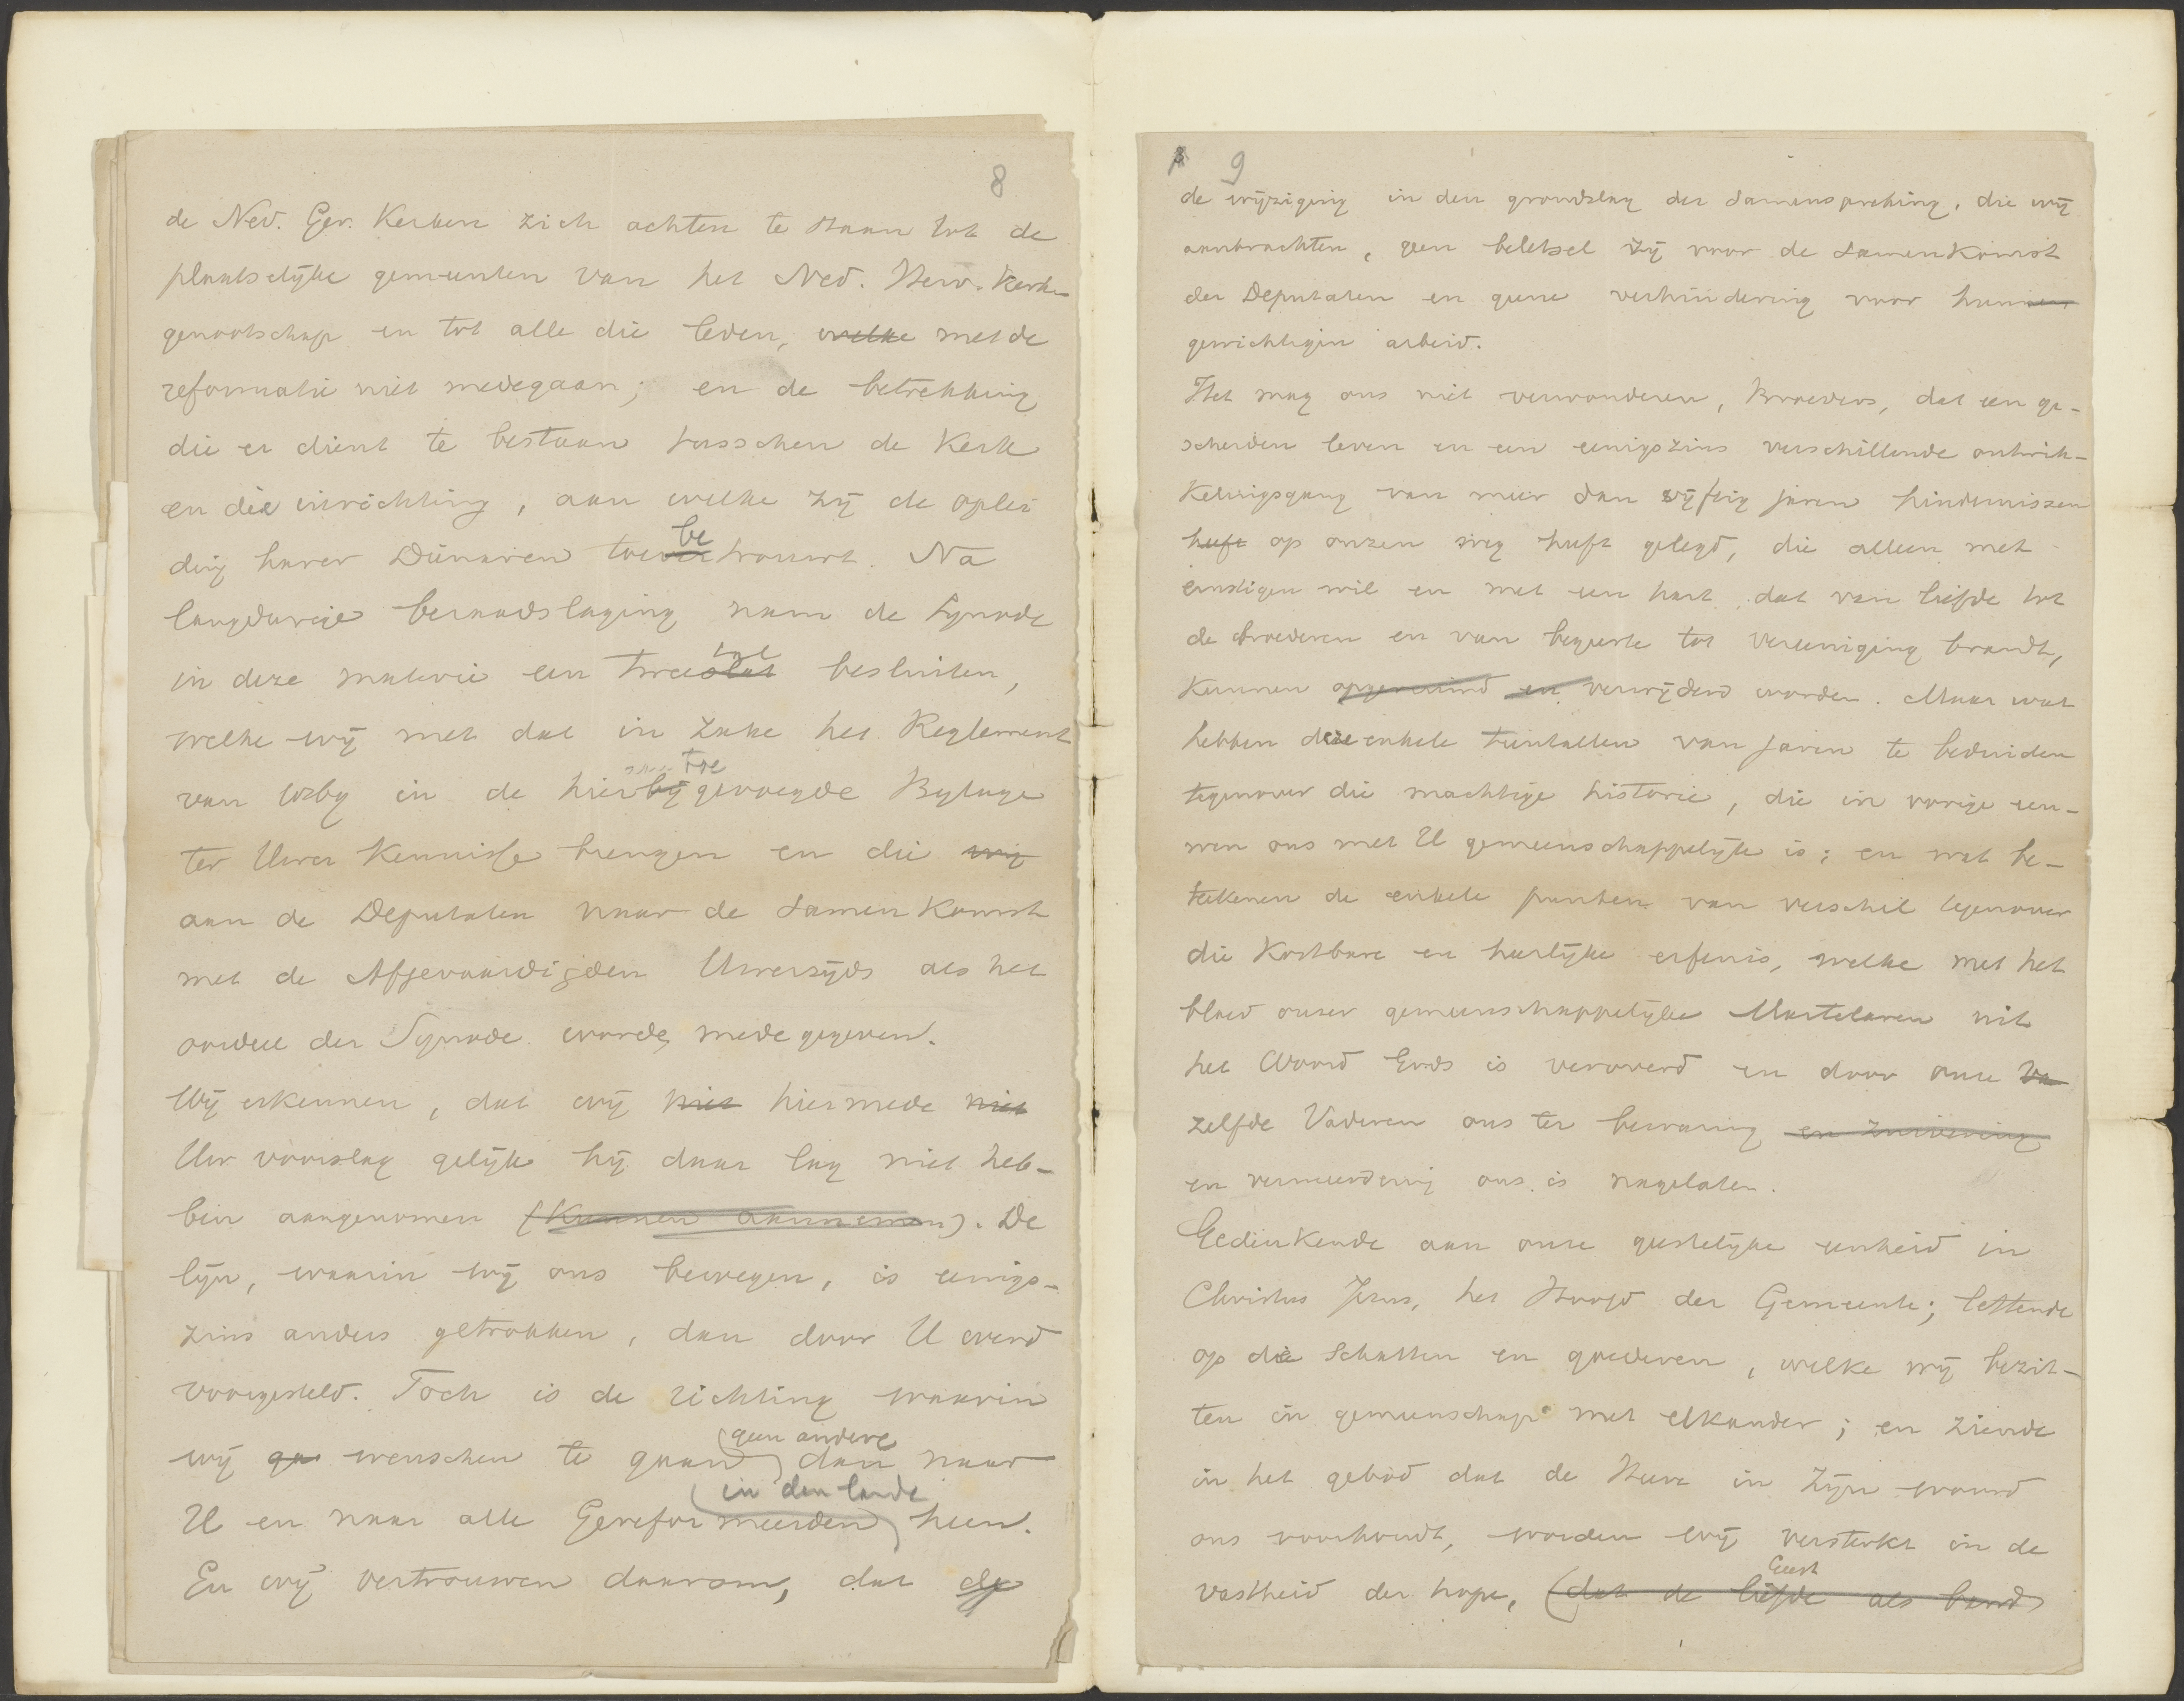 8
de Ned. Ger. Kerken zich achten te staan tot de
plaatselijke gemeenten van het Ned. Herv. Kerk-
genootschap en tot alle die leden, welke met de
reformatie niet medegaan; en de betrekking
die er dient te bestaan tusschen de Kerk
en die inrichting, aan welke zij de oplei
ding harer Dienaren toe
be
trouwt. Na
langdurige beraadslaging nam de Synode
in deze materie een twee
tal
besluiten,
welke wij met dat in zake het Reglement
van in de hierbij
toe
gevoegde Bylage
ter Uwer Kennisse brengen en die wij
aan de Deputaten naar de Samenkomst
met de Afgevaardigden Uwerzijds als het
oordeel der Synode worde medegegeven.
Wij erkennen, dat wij niet hiermede niet
Uw voorslag gelijk hij daar lag niet heb-
ben aangenomen (kunnen aannemen). De
lijn, waarin wij ons bewegen, is eenigs-
zins anders getrokken, dan door U werd
voorgesteld. Toch is de richting waarin
wij ga wenschen te gaan
geen andere
dan naar
U en naar alle Gereformeerden
in den lande
heen.
En wij vertrouwen daarom, dat de
9
de wijziging in den grondslag der Samenspreking, die wij
aanbrachten, geen beletsel zij voor de Samenkomst
der Deputaten en geene verhindering voor hunnen
gewichtigen arbeid.
Het mag ons niet verwonderen, Broeders, dat een ge-
scheiden leven en een eenigszins verschillende ontwik-
kelingsgang van meer dan vijftig jaren hindernissen
heeft op onzen weg heeft gelegd, die alleen met
ernstigen wil en met een hart dat van liefde tot
de broederen en van begeerte tot vereeniging brandt,
kunnen opgeruimd en verwijderd worden. Maar wat
hebben die enkele tientallen van jaren te beduiden
tegenover die machtige historie, die in vorige eeu-
wen ons met U gemeenschappelijk is; en wat be-
teekenen de enkele punten van verschil tegenover
die kostbare en heerlijke erfenis, welke met het
bloed onzer gemeenschappelijke Martelaren uit
het Woord Gods is veroverd en door onze
zelfde Vaderen ons ter bewaring en zuivering
en vermeerdering ons is nagelaten.
Gedenkende aan onze geestelijke eenheid in
Christus Jezus, het Hoofd der Gemeente; lettende
op die Schatten en goederen, welke wij bezit-
ten in gemeenschap met elkander; en ziende
in het gebod dat de Heere in Zijn woord
ons voorhoudt, worden wij versterkt in de
vastheid der hope, (dat de liefde
Geest
als band